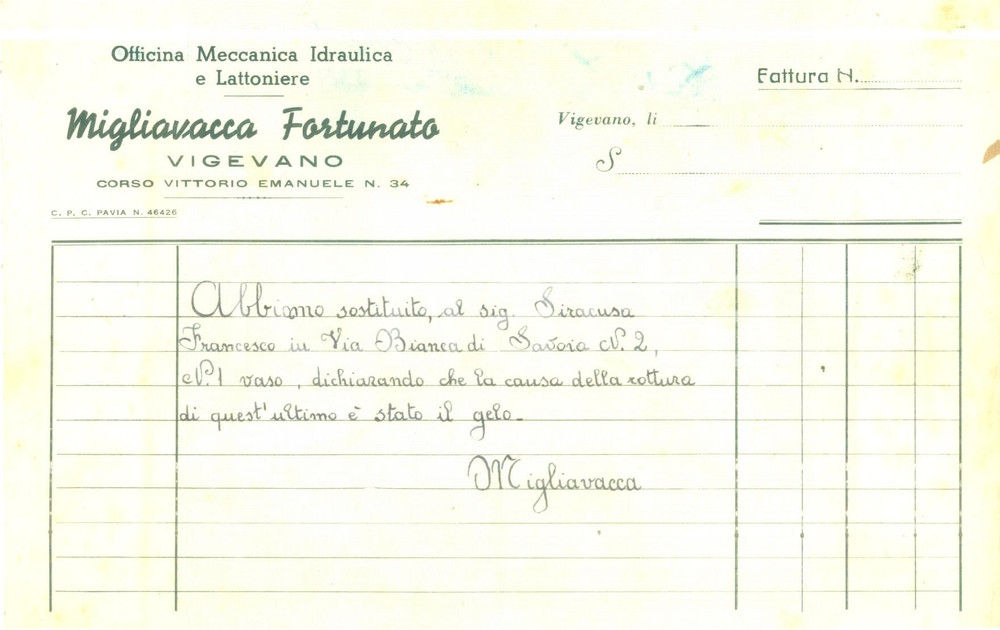 Officina Meccanica Idraulica
e Lattoniere
Migliavacca Fortunato
VIGEVANO
CORSO VITTORIO EMANUELE N. 34
C. P. C. PAVIA N. 46426
Fattura N.
Vigevano, li
S
Abbiamo sostituito, al sig. Siracusa
Francesco in Via Bianca di Savoia N. 2,
N. 1 vaso, dichiarando che la causa della rottura
di quest'ultimo è stato il gelo.
Migliavacca